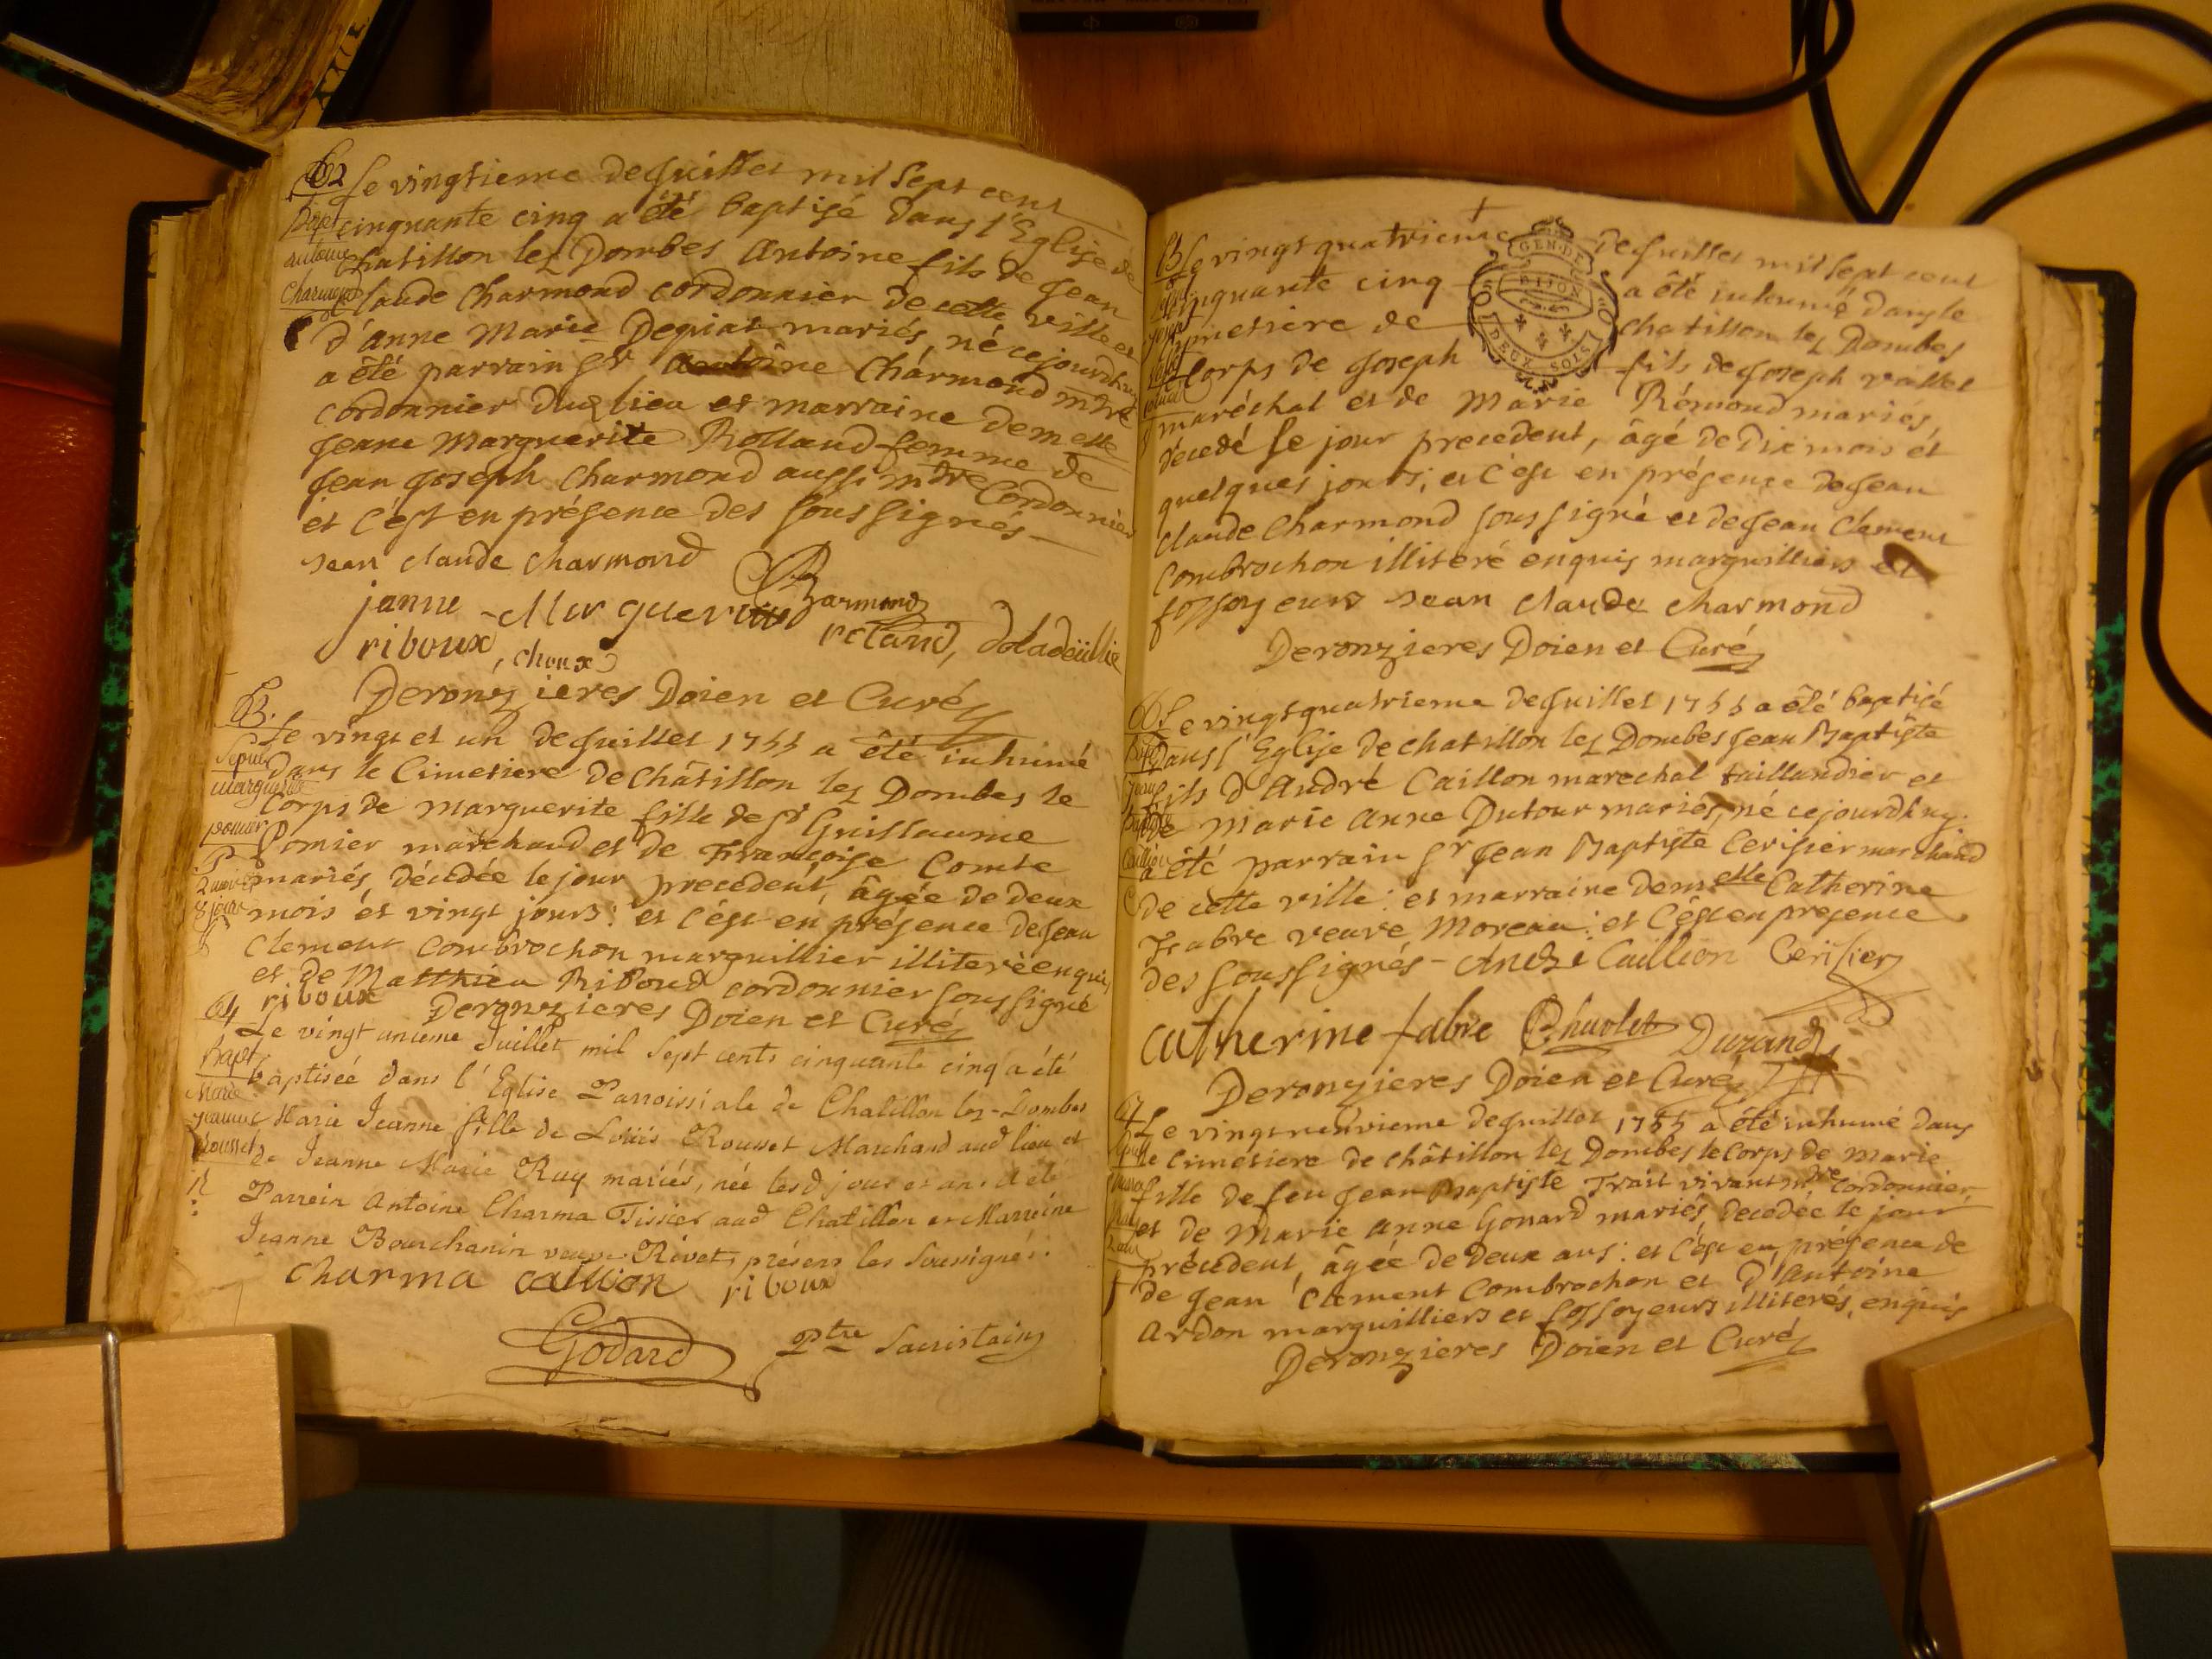 62 Le vingtieme de Juillet mil Sept cent
Bapt cinquante cinq a été baptisé dans l'Eglise de
antoine Chatillon lez Dombes Antoine fils de Jean
Charmond Claude Charmond cordonnier de cette ville et
d'anne Marie Depiat mariés, né cejourdhuy
a été parrain Sr Antoine Charmond mtre
cordonnier dud lieu et marraine demelle
Jeane Marguerite Rolland femme de
Jean Joseph Charmond aussi mtre Cordonnier
et c'est en présence des soussignés
Jean claude charmond
Charmond
janne Marguerite roland, Doladeüllie
riboux, choux
Deronzieres Doien et Curé
63. Le vingt et un de Juillet 1755 a été inhumé
Sepult dans le Cimetiere de Châtillon lez Dombes le
marguerite Corps de marguerite fille de Sr Guillaume
pomier Pomier marchand et de Françoise Comte
2 mois mariés, décédée le jour precedent, âgée de deux
jours mois et vingt jours : et c'est en présence de Jean
Clement Combrochon marguillier illiteré enquis
et de Matthieu Riboud cordonnier soussigné
riboux Deronzieres Doien et Curé
64 Le vingt unieme Juillet mil Sept cents cinquante cinq a été
Bapt baptisée dans l'Eglise Parroissiale de Chatillon lez-Dombes
Marie Jeanne Marie Jeanne fille de Loüis Rousset Marchand aud lieu et
Rousset de Jeanne Marie Ruy mariés, née lesd jour et an a été
Parrein Antoine Charma Tissier aud Chatillon et Marreine
Jeanne Bourchanin veuve Rivet, présens les Soussignés.
charma caillion riboux
Godard ptre Sacristain
65 Le vingt quatrieme de Juillet mil sept cent
cinquante cinq a été inhumé dans le
cimetiere de Chatillon lez Dombes
le Corps de Joseph fils de Joseph vallet
GEN. DE DIJON
DEUX SOLS
maréchal et de Marie Rémond mariés,
décedé le jour precedent, âgé de Dix mois et
quelques jours, et c'est en présence de Jean
Claude Charmond soussigné et de Jean Clement
Combrochon illiteré enquis marguilliers et
fossoyeurs Jean claude charmond
Deronzieres Doien et Curé
66 Le vingt quatrieme de Juillet 1755 a été baptisé
dans l'Eglise de chatillon lez Dombes Jean Baptiste
fils d'André Caillon marechal taillandier et
de Marie Anne Dutour mariés, né cejourdhuy.
a été parrain Sr Jean Baptiste Cerisier marchand
de cette ville : et marraine demelle Catherine
Fabre veuve Moreau : et c'est en presence
des soussignés - André Caillion Cerisier
catherine fabre Chuolet Durand
Deronzieres Doien et Curé
67 Le vingt neuvieme de Juillet 1755 a été inhumé dans
le Cimetiere de Châtillon lez Dombes le Corps de marie
fille de feu Jean Baptiste Trait vivant mtre cordonnier,
et de Marie Anne Gonard mariés, décédée le jour
précédent, âgée de deux ans : et c'est en présence de
de Jean Clement Combrochon et d'Antoine
Ardon marguilliers et fossoyeurs illiterés, enquis
Deronzieres Doien et Curé